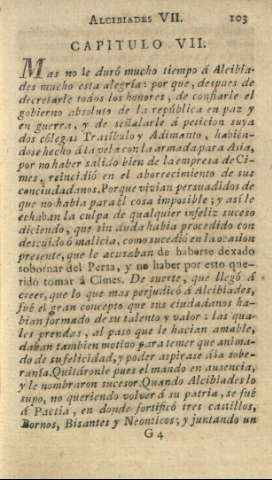 ALCIBIADES VII. 103
CAPITULO VII.
Mas no le duró mucho tiempo á Alcibia-
des mucho esta alegria: por que, despues de
decretarle todos los honores, de confiarle el
gobierno absoluto de la república en paz y
en guerra, y de señalarle á peticion suya
dos cólegas Trasíbulo y Adimanto, habién-
dose hecho á la vela con la armada para Asia,
por no haber salido bien de la empresa de Ci-
mes, reincidió en el aborrecimiento de sus
conciudadanos. Porque vivian persuadidos de
que no habia para él cosa imposible; y asi le
echaban la culpa de qualquier infeliz suceso
diciendo, que sin duda habia procedido con
descuido ó malicia, como sucedió en la ocasion
presente, que le acusaban de haberse dexado
sobornar del Persa, y no haber por esto que-
rido tomar á Cimes. De suerte, que llegó á
creer, que lo que mas perjudicó á Alcibiades,
fué el gran concepto que sus ciudadanos ha-
bian formado de su talento y valor: las qua-
les prendas, al paso que le hacian amable,
daban tambien motivo para temer que anima-
do de su felicidad, y poder aspirase á la sobe-
ranía. Quitáronle pues el mando en ausencia,
y le nombraron sucesor. Quando Alcibiades lo
supo, no queriendo volver á su patria, se fué
á Pactia, en donde fortificó tres castillos,
Bornos, Bisantes y Neonticos; y juntando un
G 4